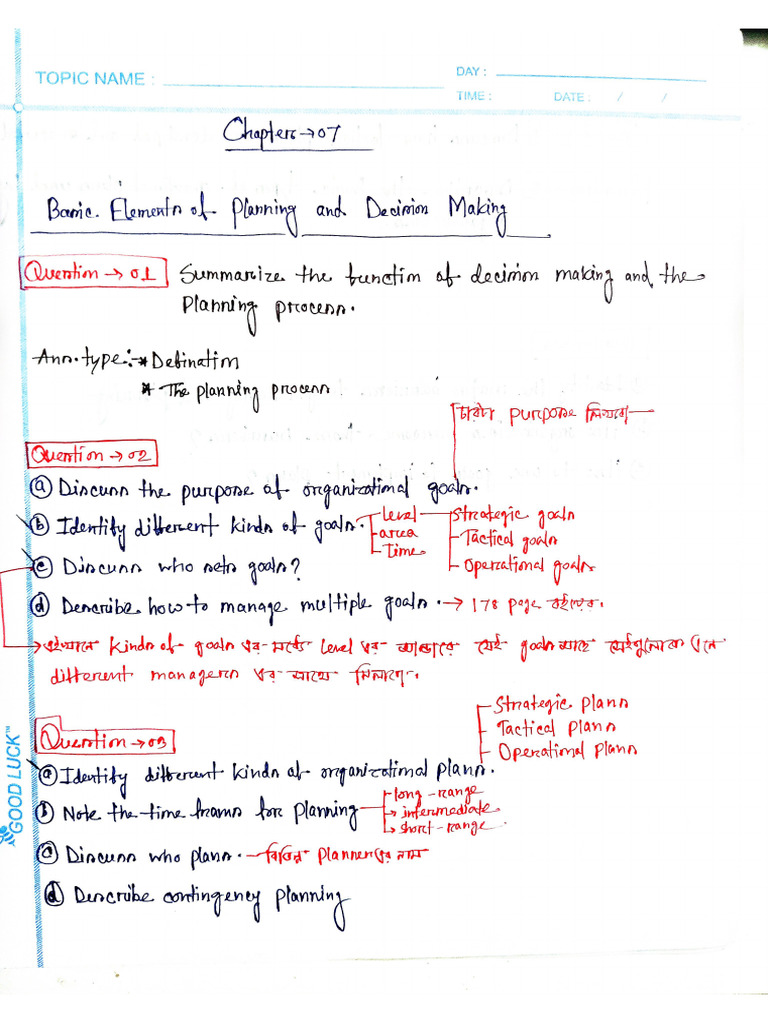 TOPIC NAME :
DAY :
TIME : DATE : / /
Chapter→07
Basic Elements of Planning and Decision Making
Question → 01 Summarize the function of decision making and the
Planning process.
Ans. type:-* Defination
* The planning process
চারটা purpose লিখবো
Question → 02
ⓐ Discuss the purpose of organizational goals.
ⓑ Identify different kinds of goals.
level
area
time
Strategic goals
Tactical goals
Operational goals
ⓒ Discuss who sets goals?
ⓓ Describe how to manage multiple goals. → 178 page বইয়ের.
→ এইখানে kinds of goals এর মধ্যে level এর goals আছে
different managers এর সাথে
Question → 03
Strategic plans
Tactical plans
Operational plans
ⓐ Identify different kinds of organizational plans.
ⓑ Note the time frams for planning
long-range
intermediate
short-range
ⓒ Discuss who plans. - বিভিন্ন Planner এর নাম
ⓓ Describe contingency planning
GOOD LUCK™